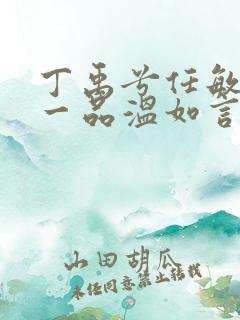 丁禹兮任敏
一品温如言
山田胡瓜
未经同意禁止转载